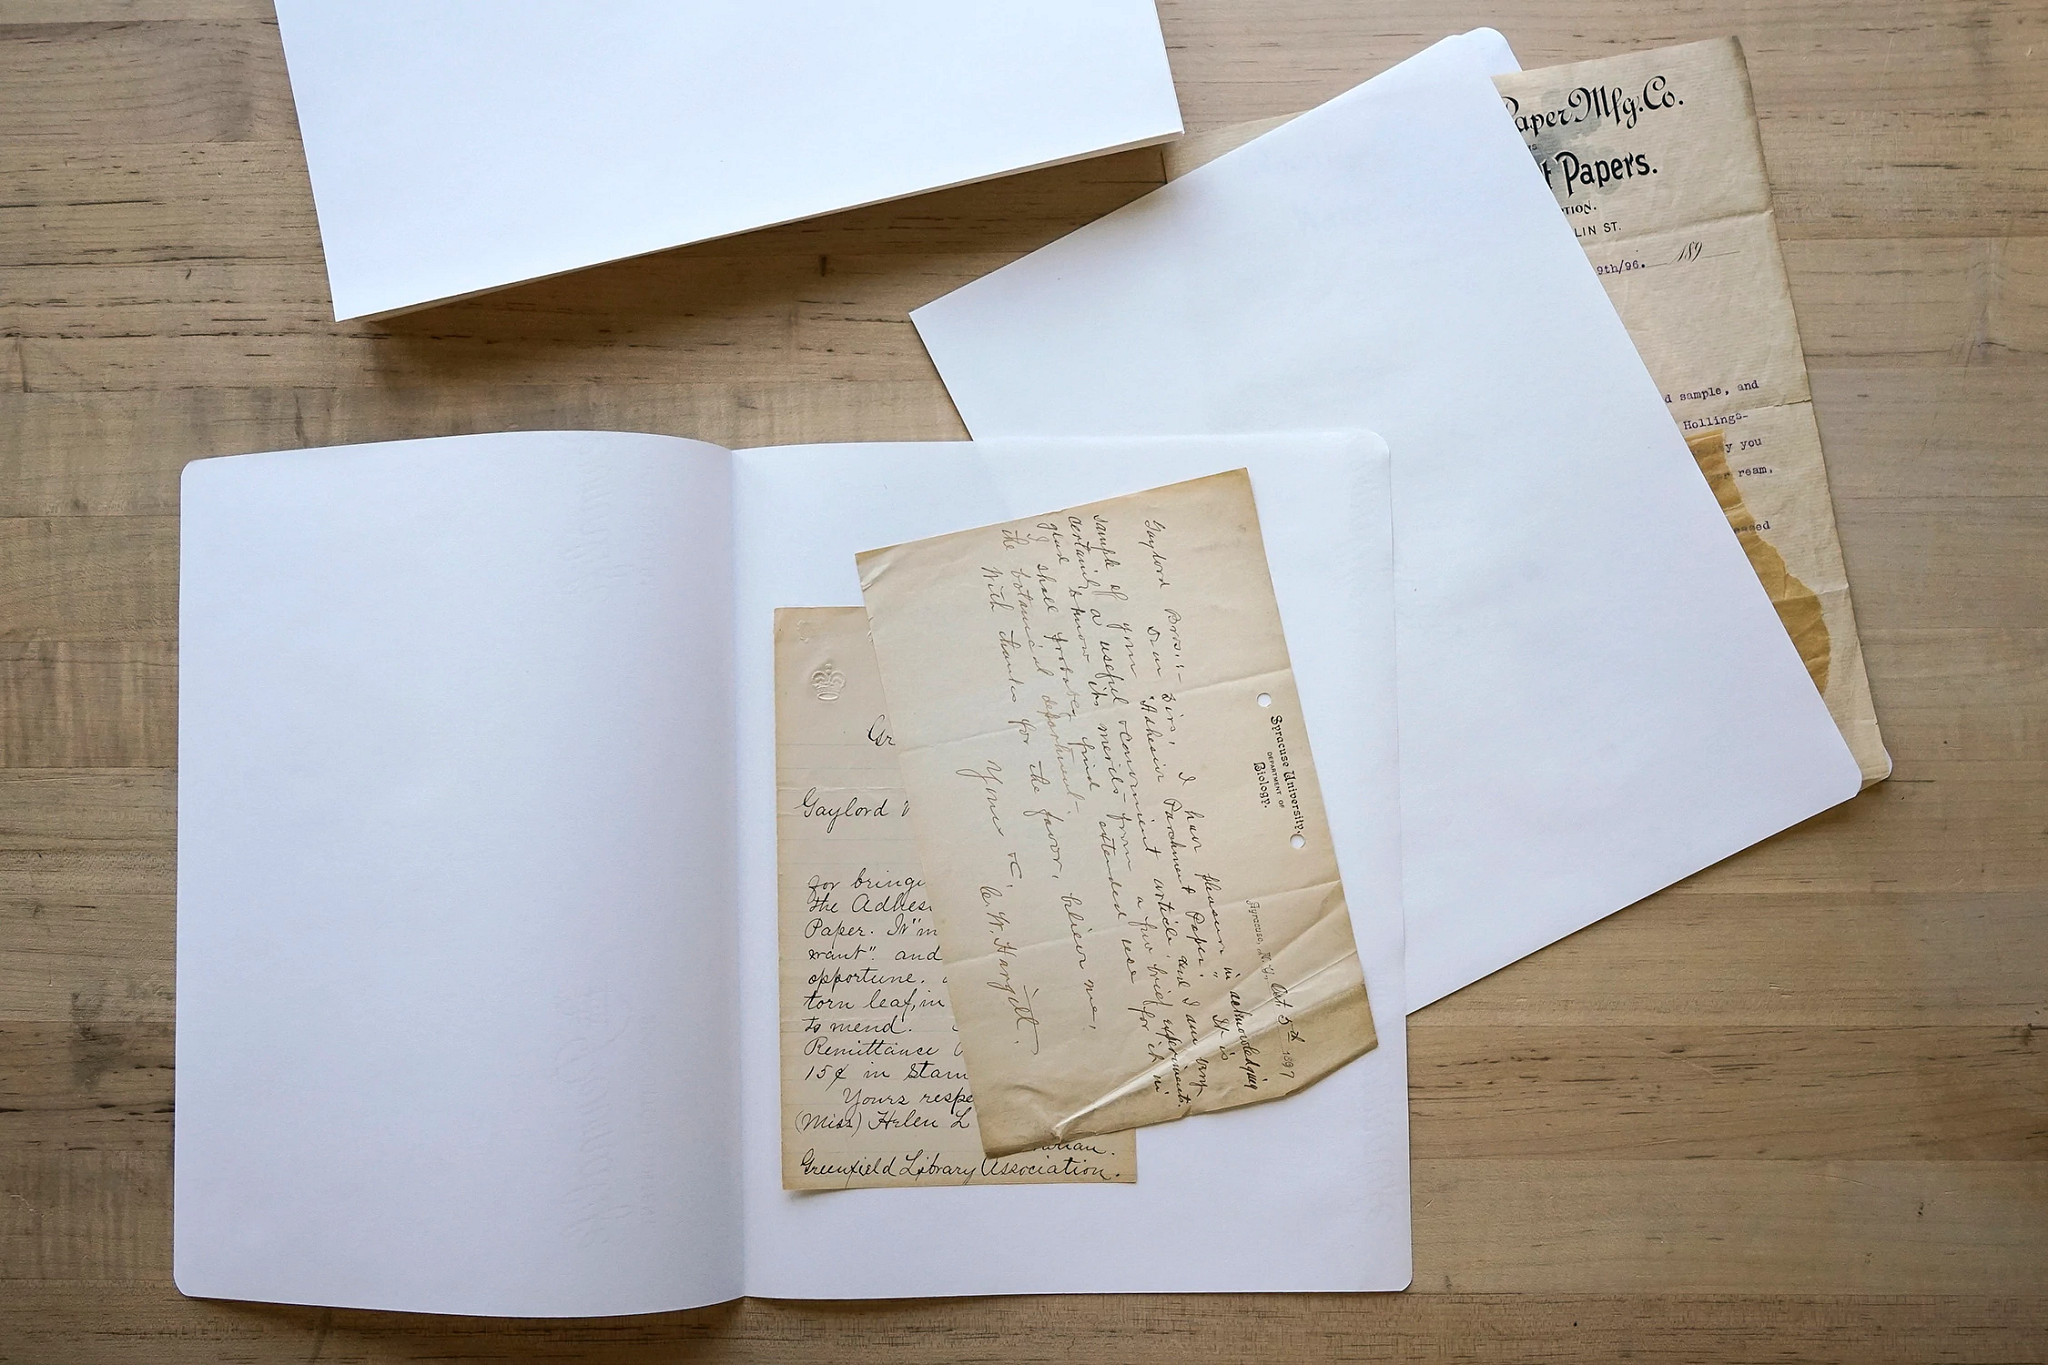 Paper Mfg. Co.
t Papers.
TION.
LIN ST.
9th/96. 189
d sample, and
Hollings-
y you
r ream,
eased
Syracuse University,
DEPARTMENT OF
Biology.
Syracuse, N. Y., Oct. 5th 1897
Gaylord Bros.:-
Dear Sirs: I have pleasure in acknowledging
sample of your "Adhesive Parchment Paper." It is
certainly a useful & convenient article and I am very
glad to know its merits from a few brief experiments.
I shall probably find extended use for it in
the botanical department.
With thanks for the favor, believe me,
Yours &c. C. W. Hargitt.
Gr
Gaylord
for bringi
the Adhesi
Paper. It "m
want". and
opportune.
torn leaf, in
to mend.
Remittance
15¢ in Stam
Yours respe
(Miss) Helen L
rarian.
Greenfield Library Association.